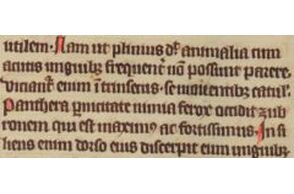 utilem. Nam ut plinius dẜ animalia cum
acutis unguibꝫ frequent᷒ nō possunt parere.
Viciant᷒ enim ītrinsecus se mouentibꝫ catul᷒.
Panthera pernicitate nimia ferox occidit
ronem qui est maximꝰ ac fortissimus. In
liens enim dorso eius discerpit eum unguibꝫ